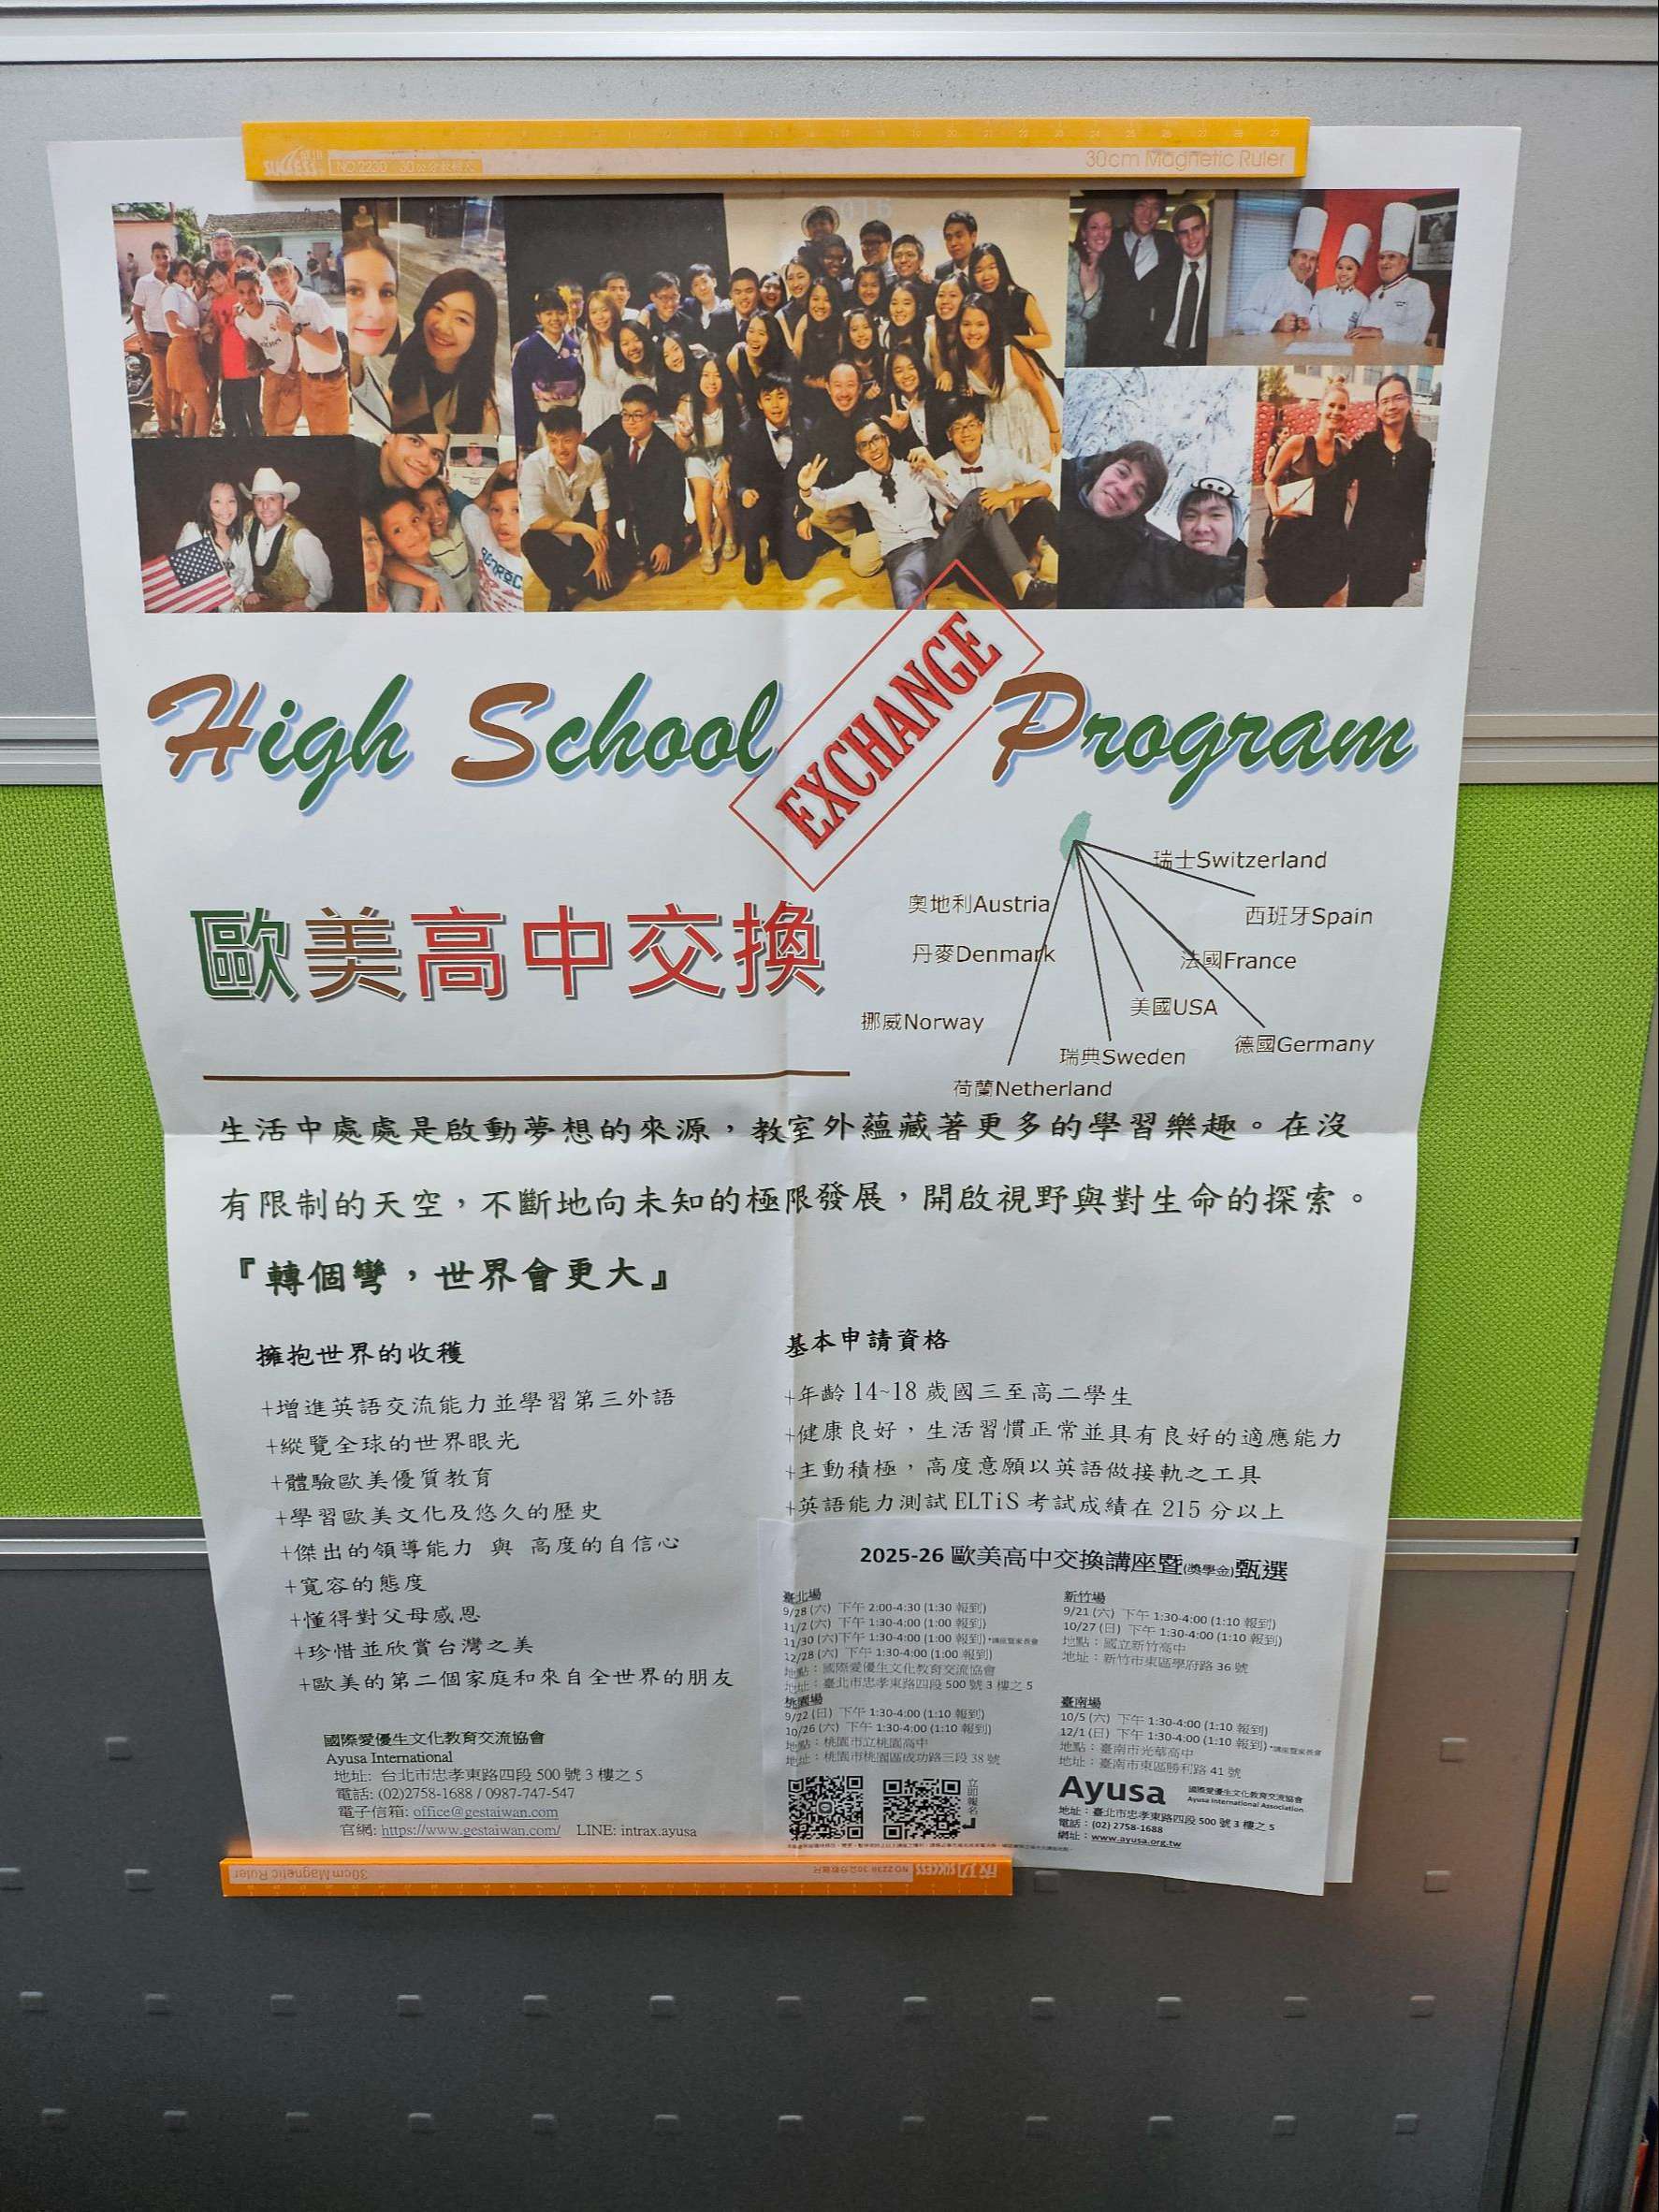 30cm Magnetic Ruler
High School EXCHANGE Program
歐美高中交換
瑞士Switzerland
奧地利Austria
西班牙Spain
丹麥Denmark
法國France
美國USA
挪威Norway
德國Germany
瑞典Sweden
荷蘭Netherland
生活中處處是啟動夢想的來源，教室外蘊藏著更多的學習樂趣。在沒
有限制的天空，不斷地向未知的極限發展，開啟視野與對生命的探索。
『轉個彎，世界會更大』
擁抱世界的收穫
+增進英語交流能力並學習第三外語
+縱覽全球的世界眼光
+體驗歐美優質教育
+學習歐美文化及悠久的歷史
+傑出的領導能力 與 高度的自信心
+寬容的態度
+懂得對父母感恩
+珍惜並欣賞台灣之美
+歐美的第二個家庭和來自全世界的朋友
基本申請資格
+年齡 14~18 歲國三至高二學生
+健康良好，生活習慣正常並具有良好的適應能力
+主動積極，高度意願以英語做接軌之工具
+英語能力測試 ELTiS 考試成績在 215 分以上
國際愛優生文化教育交流協會
Ayusa International
地址: 台北市忠孝東路四段 500 號 3 樓之 5
電話: (02)2758-1688 / 0987-747-547
電子信箱: office@gestaiwan.com
官網: https://www.gestaiwan.com/ LINE: intrax.ayusa
2025-26 歐美高中交換講座暨(獎學金)甄選
臺北場
9/28 (六) 下午 2:00-4:30 (1:30 報到)
11/2 (六) 下午 1:30-4:00 (1:00 報到)
11/30 (六)下午 1:30-4:00 (1:00 報到) *講座暨家長會
12/28 (六) 下午 1:30-4:00 (1:00 報到)
地點：國際愛優生文化教育交流協會
地址：臺北市忠孝東路四段 500 號 3 樓之 5
桃園場
9/22 (日) 下午 1:30-4:00 (1:10 報到)
10/26 (六) 下午 1:30-4:00 (1:10 報到)
地點：桃園市立桃園高中
地址：桃園市桃園區成功路三段 38 號
立即報名
新竹場
9/21 (六) 下午 1:30-4:00 (1:10 報到)
10/27 (日) 下午 1:30-4:00 (1:10 報到)
地點：國立新竹高中
地址：新竹市東區學府路 36 號
臺南場
10/5 (六) 下午 1:30-4:00 (1:10 報到)
12/1 (日) 下午 1:30-4:00 (1:10 報到) *講座暨家長會
地點：臺南市光華高中
地址：臺南市東區勝利路 41 號
Ayusa 國際愛優生文化教育交流協會
Ayusa International Association
地址：臺北市忠孝東路四段 500 號 3 樓之 5
電話：(02) 2758-1688
網址：www.ayusa.org.tw
30cm Magnetic Ruler
SUCCESS